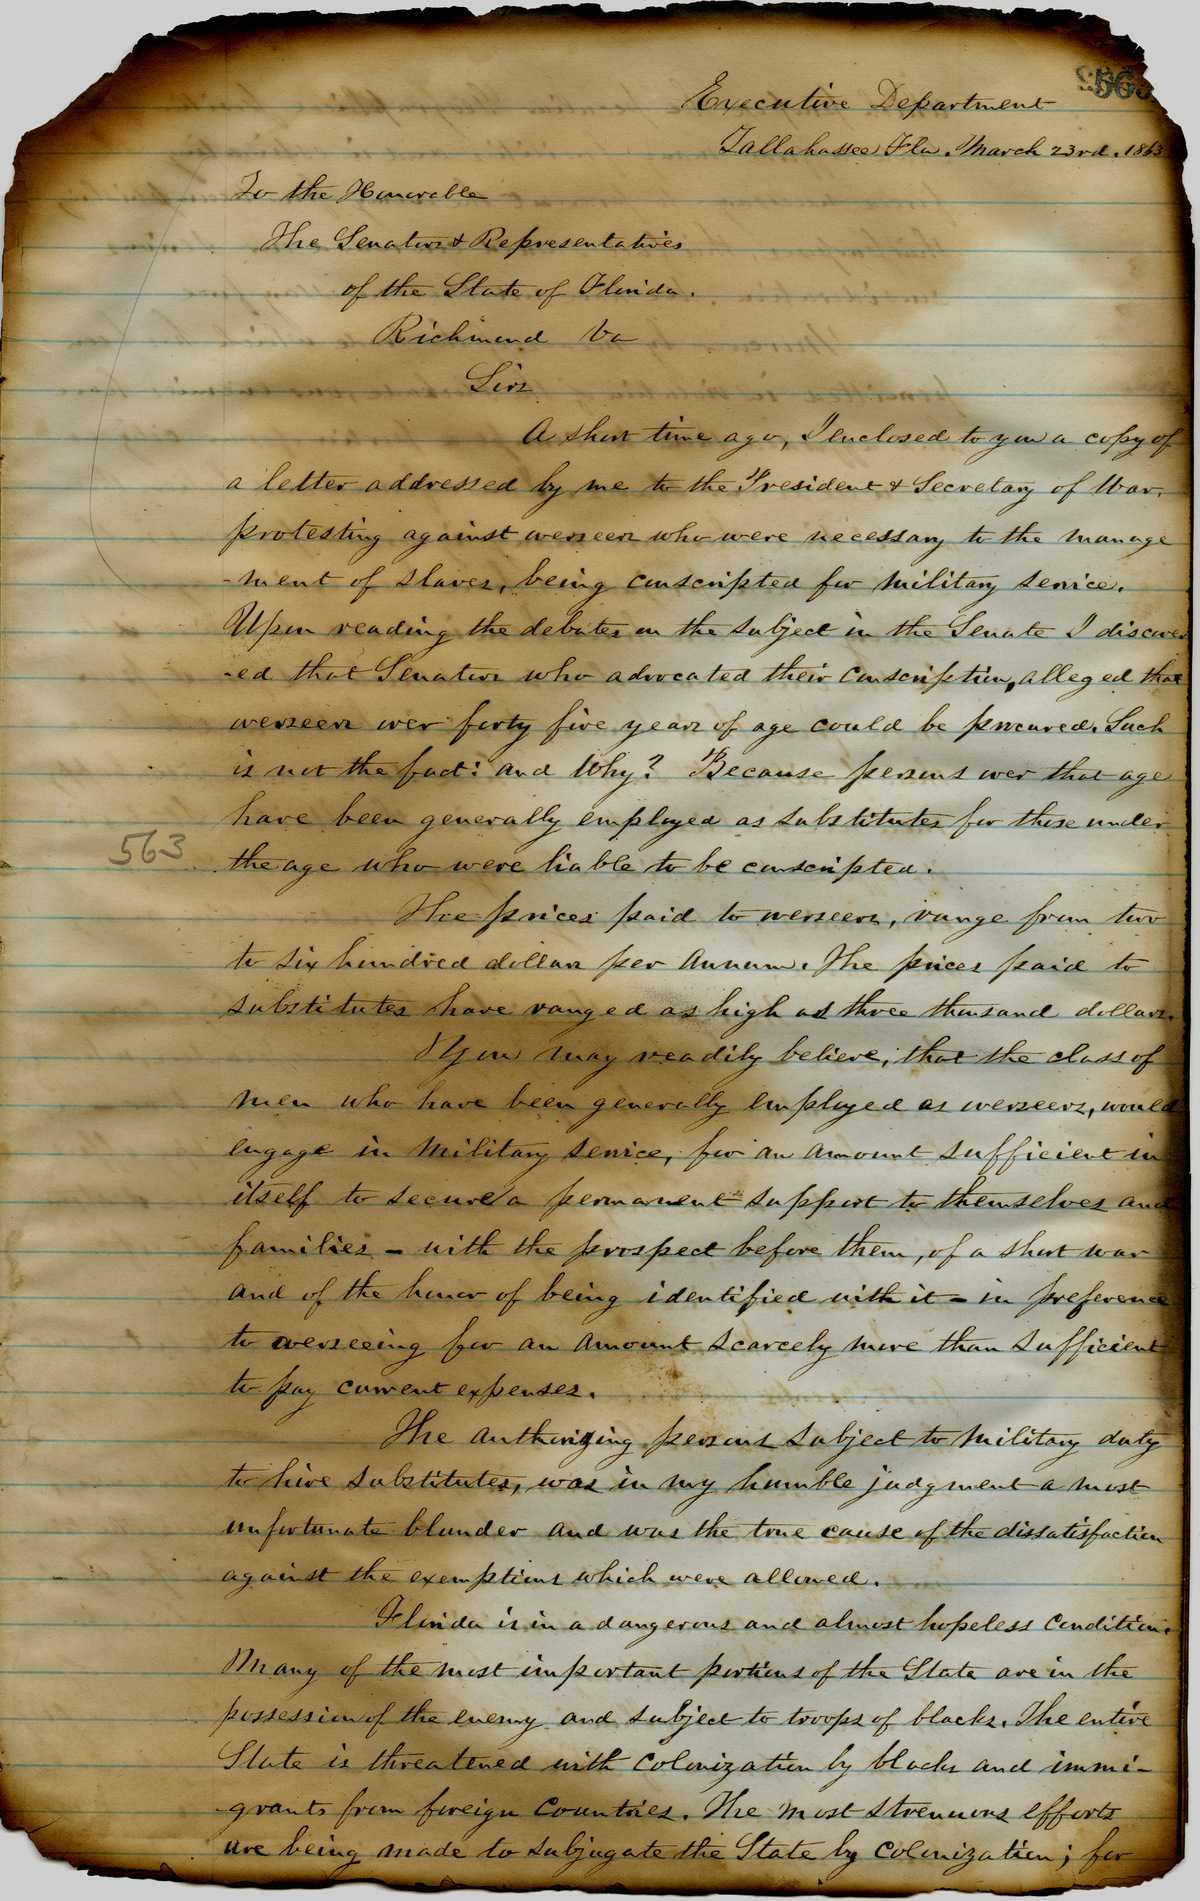 563
Executive Department
Tallahassee Fla. March 23rd. 1863
To the Honorable
The Senators & Representatives
of the State of Florida.
Richmond Va
Sirs
A short time ago, I enclosed to you a copy of
a letter addressed by me to the President & Secretary of War,
protesting against overseers who were necessary to the manage
-ment of slaves, being conscripted for military service.
Upon reading the debates on the subject in the Senate I discover
-ed that Senators who advocated their conscription, alleged that
overseers over forty five years of age could be procured. Such
is not the fact: and Why? Because persons over that age
have been generally employed as substitutes for those under
563
the age who were liable to be conscripted.
The prices paid to overseers, range from two
to six hundred dollars per annum. The prices paid to
substitutes have ranged as high as three thousand dollars.
You may readily believe, that the class of
men who have been generally employed as overseers, would
engage in military service, for an amount sufficient in
itself to secure a permanent support to themselves and
families - with the prospect before them, of a short war
and of the honor of being identified with it - in preference
to overseeing for an amount scarcely more than sufficient
to pay current expenses.
The authorizing persons subject to military duty
to hire substitutes, was in my humble judgment a most
unfortunate blunder and was the true cause of the dissatisfaction
against the exemptions which were allowed.
Florida is in a dangerous and almost hopeless condition.
Many of the most important portions of the State are in the
possession of the enemy and subject to troops of blacks. The entire
State is threatened with colonization by blacks and immi-
grants from foreign Countries. The most strenuous efforts
are being made to subjugate the State by colonization; for